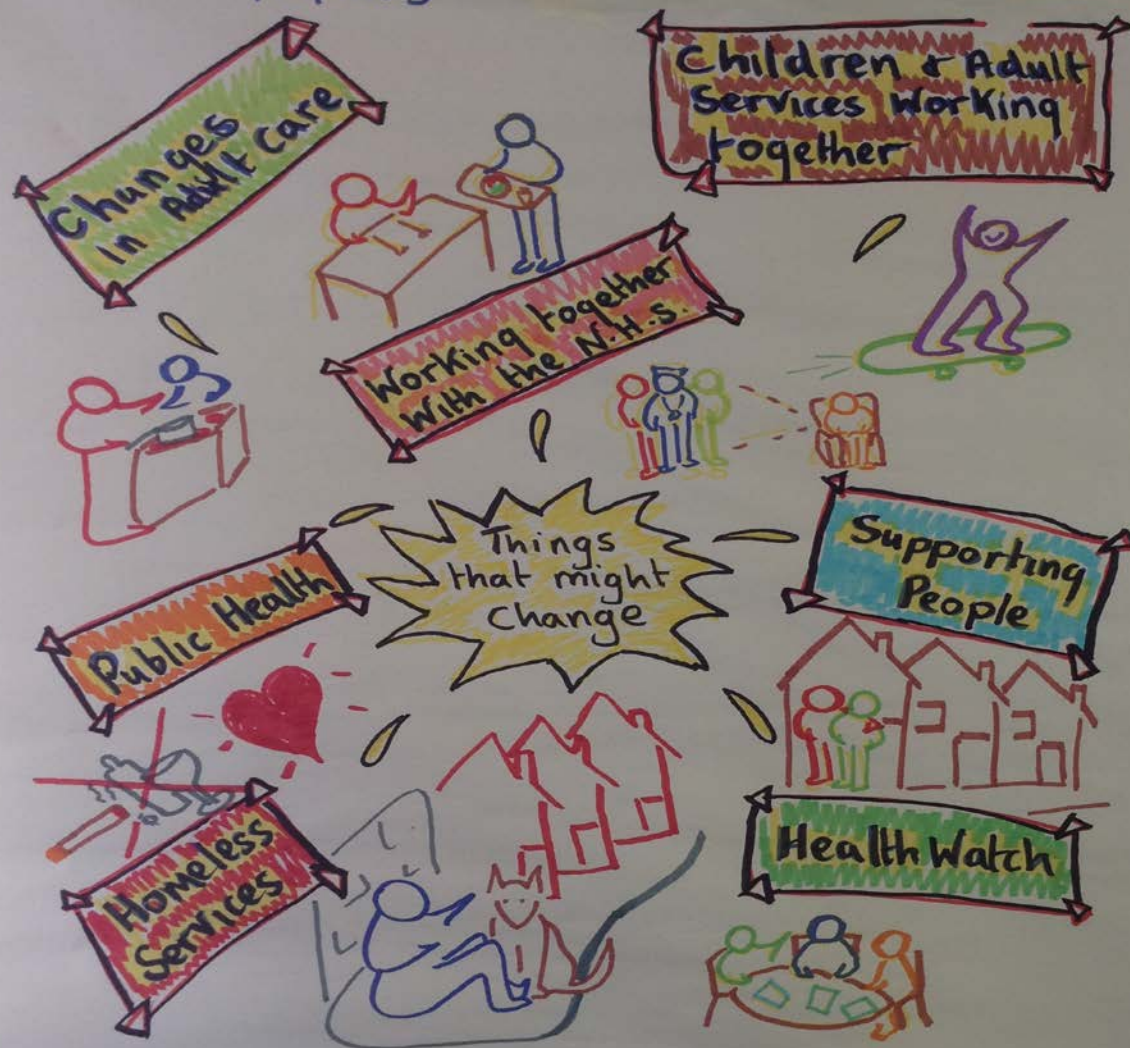 Changes
in Adult Care
Children & Adult
Services Working
together
Working together
With the N.H.S.
Things
that might
Change
Supporting
People
Public Health
Homeless
Services
Health Watch